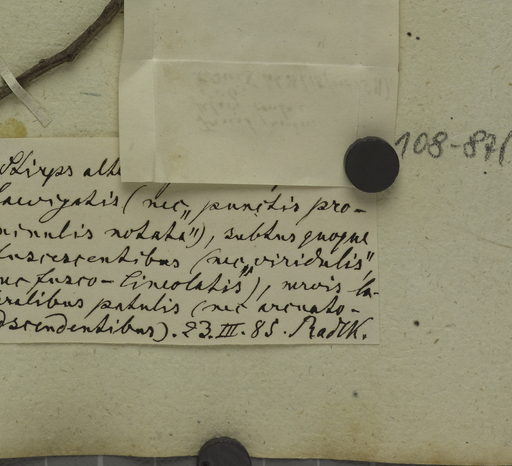 108-87
Stirps alte
laevigatis (nec „punctis pro-
minulis notata"), subtus quoque
fuscescentibus (nec „viridulis",
nec fusco-lineolatis"), nervis la-
eralibus patulis (nec arcuato-
dscendentibus). 23.III.85. Radlk.